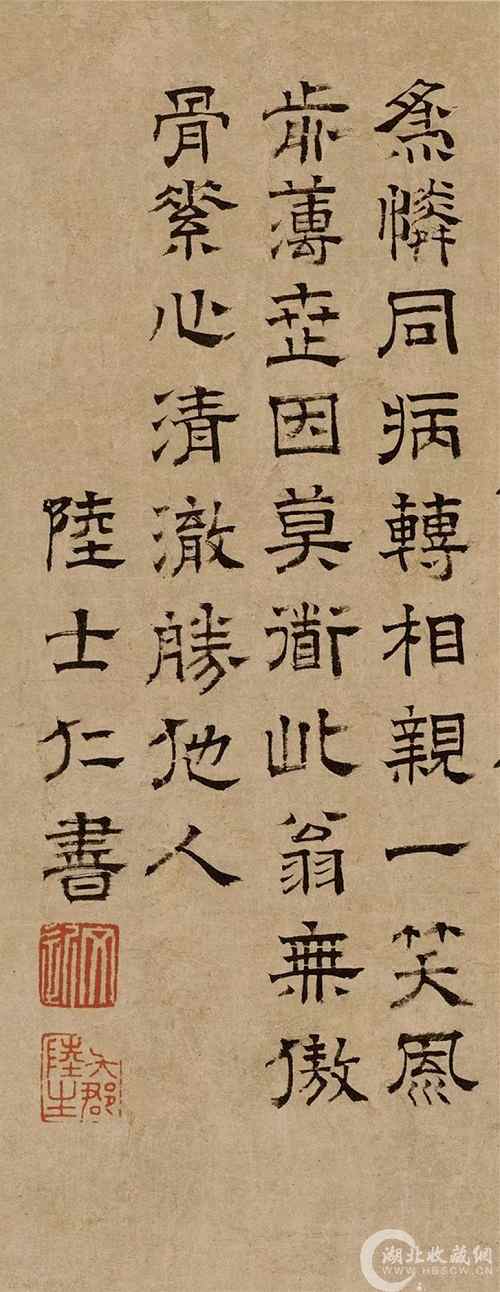 為憐同病轉相親一笑風
前薄世因莫道此翁無傲
骨素心清澈勝他人
陸士仁書
吳郡陸生
湖北收藏網
WWW.HBSCW.CN